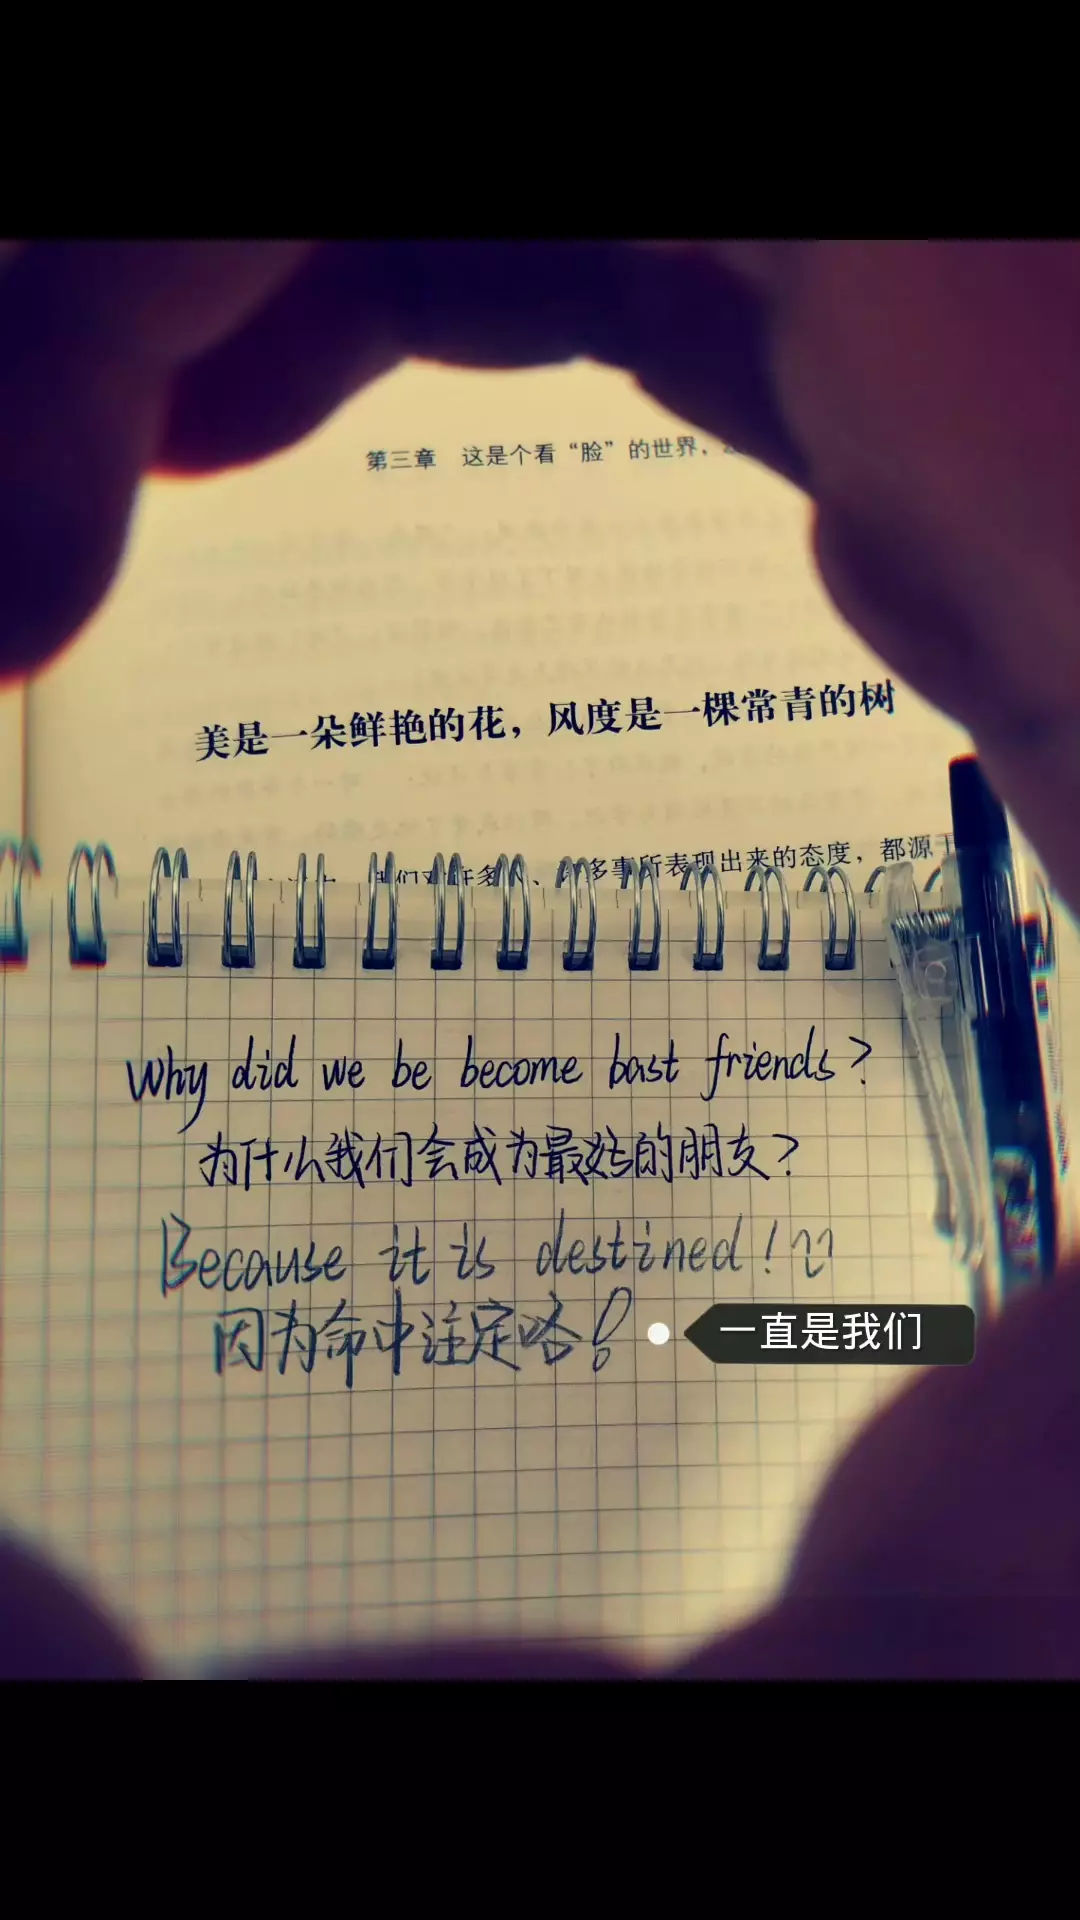 第三章 这是个看“脸”的世界，
美是一朵鲜艳的花，风度是一棵常青的树
们对许多人、许多事所表现出来的态度，都源于
Why did we be become bast friends?
为什么我们会成为最好的朋友?
Because it is destined!
因为命中注定咯!
一直是我们